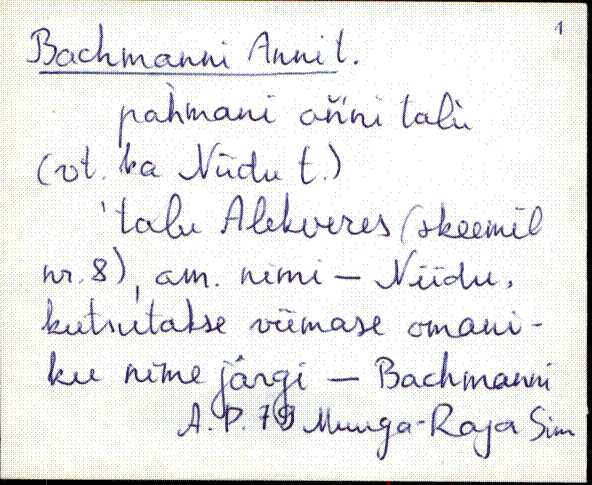 1
Bachmanni Anni t.
pàhmani ańni talù
(vt. ka Niidu t.)
'talu Alekveres (skeemil
nr. 8), am. nimi – Niidu,
kutsutakse viimase omani-
ku nime järgi – Bachmanni
A.P. 79 Munga-Raja Sim